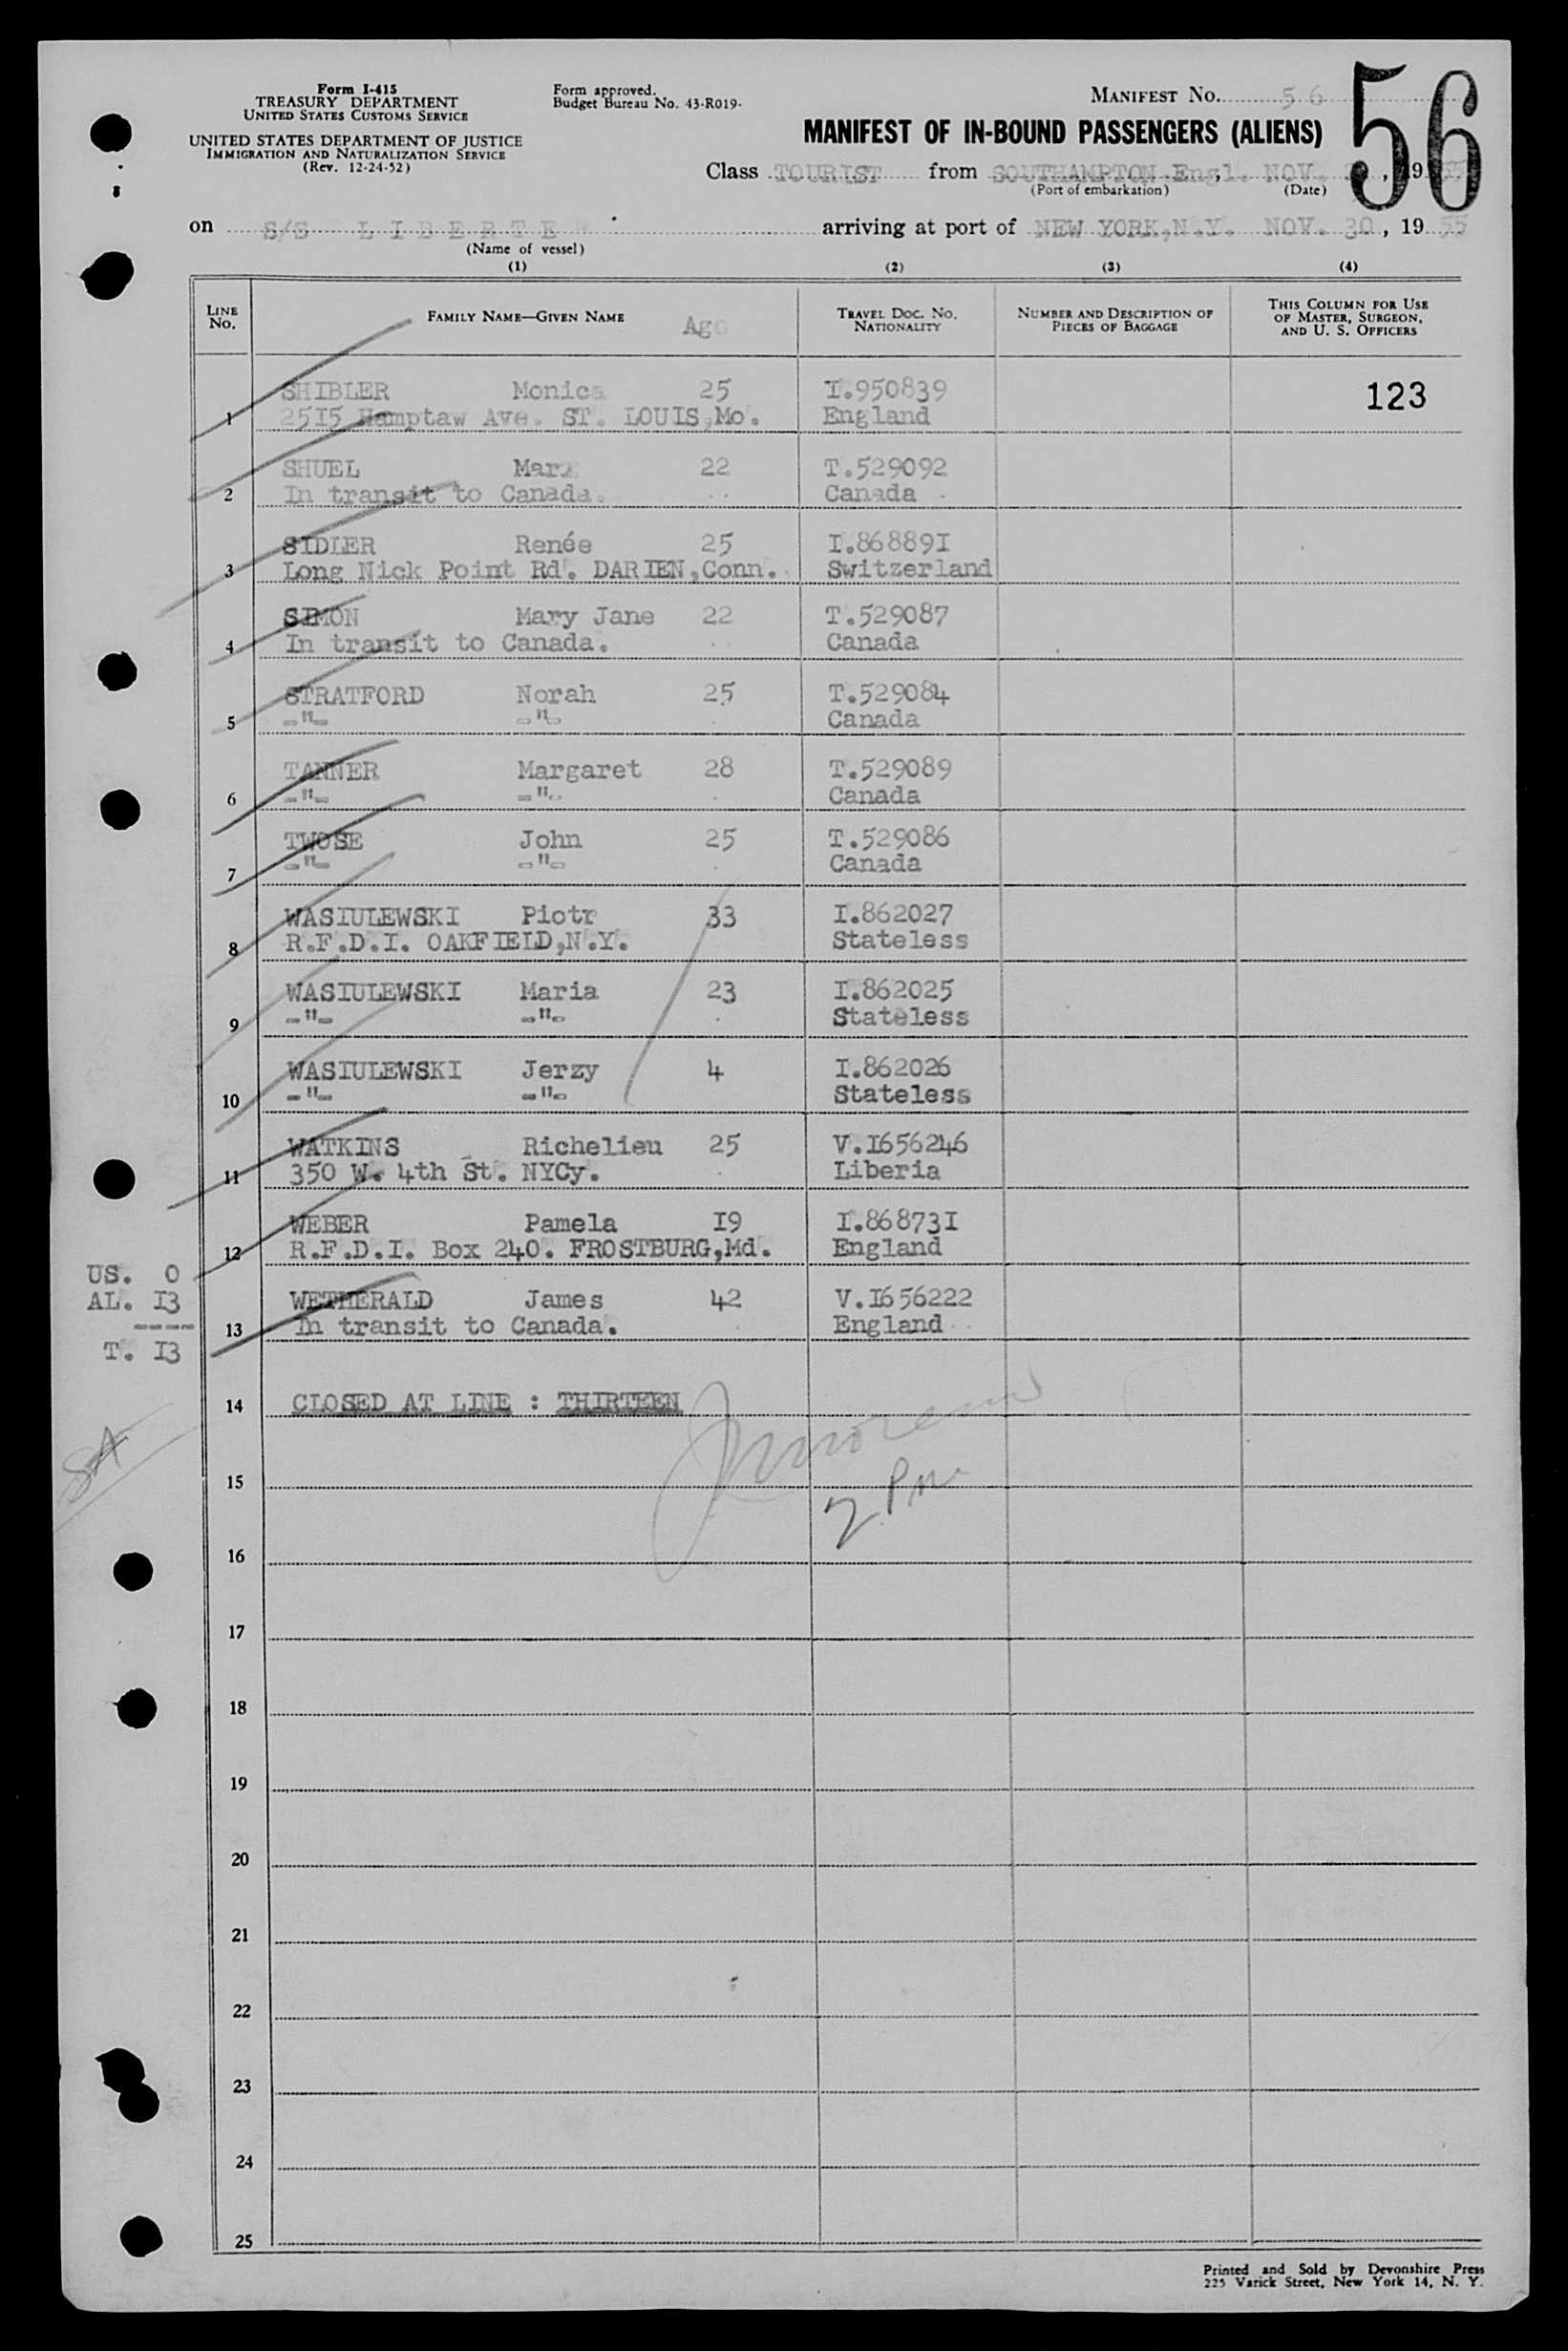 Form I-415
TREASURY DEPARTMENT
UNITED STATES CUSTOMS SERVICE
UNITED STATES DEPARTMENT OF JUSTICE
IMMIGRATION AND NATURALIZATION SERVICE
(Rev. 12-24-52)
Form approved.
Budget Bureau No. 43-R019-
MANIFEST No. 56
56
MANIFEST OF IN-BOUND PASSENGERS (ALIENS)
Class TOURIST from SOUTHAMPTON Engl. NOV. , 19
(Port of embarkation) (Date)
on S/S LIBERTE arriving at port of NEW YORK,N.Y. NOV. 30, 19 55
(Name of vessel)
(1) (2) (3) (4)
LINE No. FAMILY NAME—GIVEN NAME Age TRAVEL DOC. NO. NATIONALITY NUMBER AND DESCRIPTION OF PIECES OF BAGGAGE THIS COLUMN FOR USE OF MASTER, SURGEON, AND U. S. OFFICERS
SHIBLER Monica 25 I.950839 123
1 2515 Hamptaw Ave. ST. LOUIS,Mo. England
SHUEL Mary 22 T.529092
2 In transit to Canada. Canada
SIDLER Renée 25 I.868891
3 Long Nick Point Rd. DARIEN,Conn. Switzerland
SIMON Mary Jane 22 T.529087
4 In transit to Canada. Canada
STRATFORD Norah 25 T.529084
5 -"- -"- Canada
TANNER Margaret 28 T.529089
6 -"- -"- Canada
TWOSE John 25 T.529086
7 -"- -"- Canada
WASIULEWSKI Piotr 33 I.862027
8 R.F.D.I. OAKFIELD,N.Y. Stateless
WASIULEWSKI Maria 23 I.862025
9 -"- -"- Stateless
WASIULEWSKI Jerzy 4 I.862026
10 -"- -"- Stateless
WATKINS Richelieu 25 V.I656246
11 350 W. 4th St. NYCy. Liberia
WEBER Pamela 19 I.868731
12 R.F.D.I. Box 240. FROSTBURG,Md. England
WETHERALD James 42 V.I656222
13 In transit to Canada. England
US. 0
AL. I3
----
T. I3
14 CLOSED AT LINE : THIRTEEN
SA
15
2 PM
16
17
18
19
20
21
22
23
24
25
Printed and Sold by Devonshire Press
225 Varick Street, New York 14, N. Y.